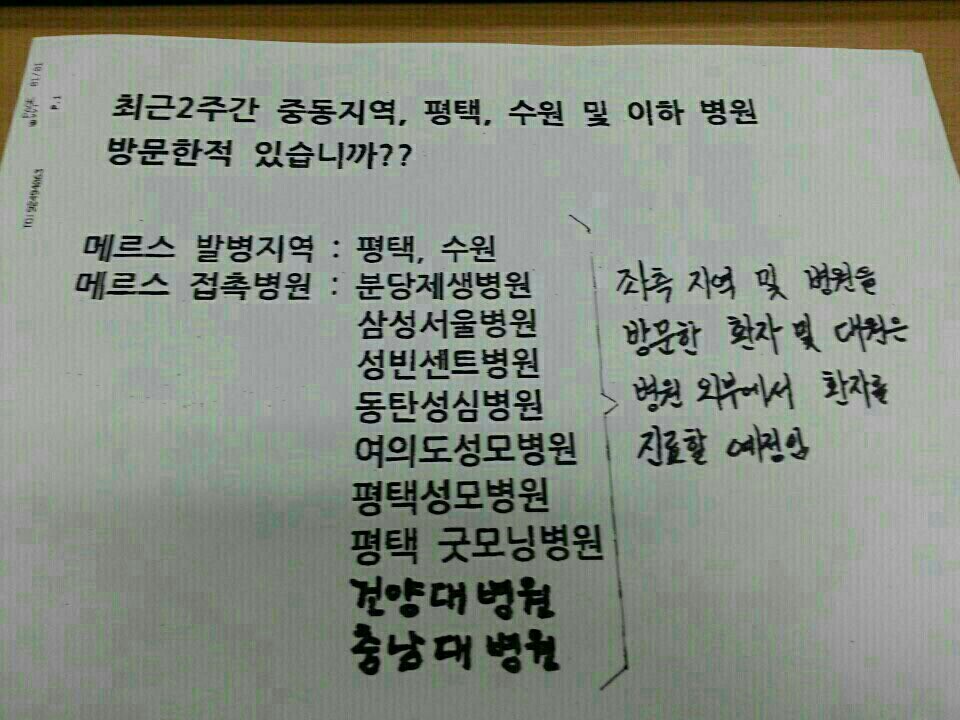 최근2주간 중동지역, 평택, 수원 및 이하 병원
방문한적 있습니까??
메르스 발병지역 : 평택, 수원
메르스 접촉병원 : 분당제생병원
삼성서울병원
성빈센트병원
동탄성심병원
여의도성모병원
평택성모병원
평택 굿모닝병원
건양대병원
충남대병원
좌측 지역 및 병원을
방문한 환자 및 대원은
병원 외부에서 환자를
진료할 예정임
P.1
TO:92494863